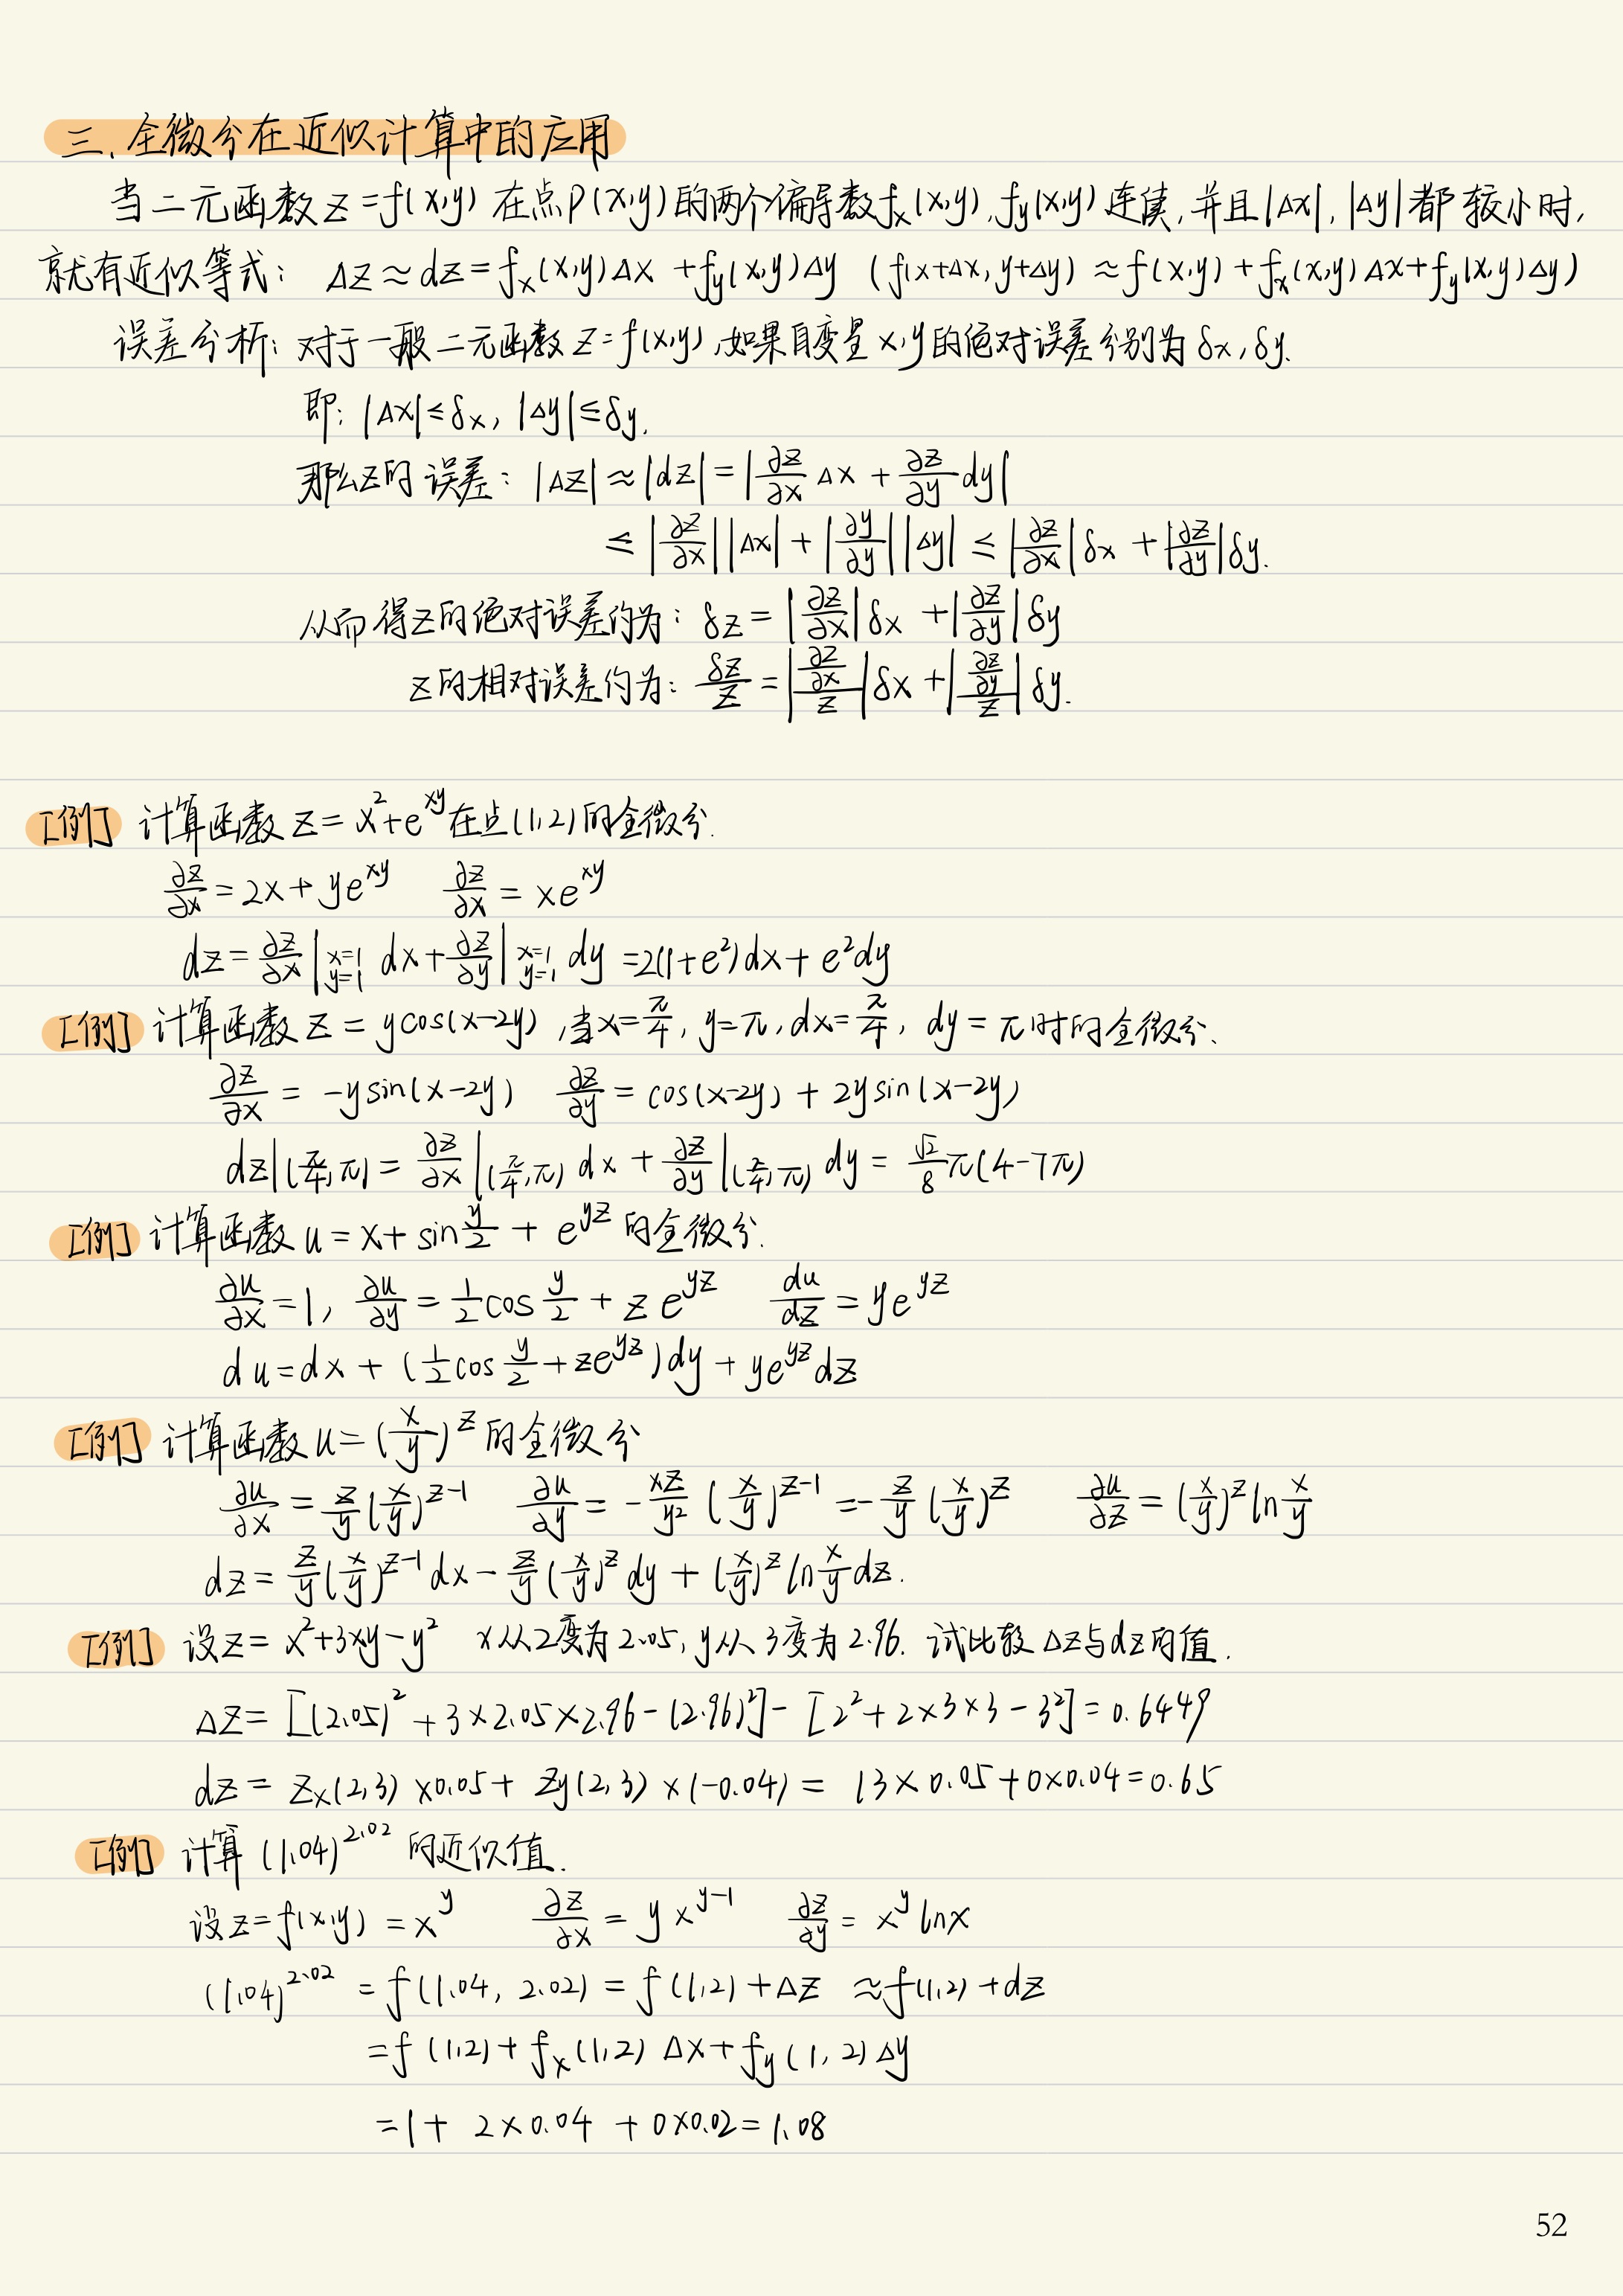 三、全微分在近似计算中的应用
当二元函数 z=f(x,y) 在点P(x,y)的两个偏导数fx(x,y), fy(x,y)连续,并且|Δx|, |Δy|都较小时,
就有近似等式: Δz≈dz=fx(x,y)Δx+fy(x,y)Δy (f(x+Δx, y+Δy)≈f(x,y)+fx(x,y)Δx+fy(x,y)Δy)
误差分析: 对于一般二元函数 z=f(x,y),如果自变量x,y的绝对误差分别为δx, δy.
即: |Δx|≤δx, |Δy|≤δy.
那么z的误差: |Δz|≈|dz|=|∂z/∂x Δx + ∂z/∂y dy|
≤|∂z/∂x||Δx|+|∂y/∂y||Δy|≤|∂z/∂x|δx+|∂z/∂y|δy.
从而得z的绝对误差约为: δz=|∂z/∂x|δx+|∂z/∂y|δy
z的相对误差约为: δz/z=|(∂z/∂x)/z|δx+|(∂z/∂y)/z|δy.
[例] 计算函数 z=x²+e^(xy) 在点(1,2)的全微分.
∂z/∂x=2x+ye^(xy) ∂z/∂x=xe^(xy)
dz=∂z/∂x|x=1 y=1 dx+∂z/∂y|x=1 y=1 dy=2(1+e²)dx+e²dy
[例] 计算函数 z=ycos(x-2y),当x=π/4, y=π, dx=π/4, dy=π时的全微分.
∂z/∂x=-ysin(x-2y) ∂z/∂y=cos(x-2y)+2ysin(x-2y)
dz|(π/4,π)=∂z/∂x|(π/4,π) dx+∂z/∂y|(π/4,π) dy=√2/8 π(4-7π)
[例] 计算函数 u=x+sin y/2+e^(yz) 的全微分.
∂u/∂x=1, ∂u/∂y=1/2 cos y/2+ze^(yz) du/dz=ye^(yz)
du=dx+(1/2 cos y/2+ze^(yz))dy+ye^(yz)dz
[例] 计算函数 u=(x/y)^z 的全微分
∂u/∂x=z/y (x/y)^(z-1) ∂u/∂y=-xz/y² (x/y)^(z-1)=-z/y (x/y)^z ∂u/∂z=(x/y)^z ln x/y
dz=z/y (x/y)^(z-1) dx-z/y (x/y)^z dy+(x/y)^z ln x/y dz.
[例] 设z=x²+3xy-y² x从2变为2.05, y从3变为2.96. 试比较Δz与dz的值.
Δz=[(2.05)²+3×2.05×2.96-(2.96)²]-[2²+2×3×3-3²]=0.6449
dz=zx(2,3)×0.05+zy(2,3)×(-0.04)=13×0.05+0×0.04=0.65
[例] 计算 (1.04)^2.02 的近似值.
设z=f(x,y)=x^y ∂z/∂x=yx^(y-1) ∂z/∂y=x^y lnx
(1.04)^2.02=f(1.04, 2.02)=f(1,2)+Δz≈f(1,2)+dz
=f(1,2)+fx(1,2)Δx+fy(1,2)Δy
=1+2×0.04+0×0.02=1.08
52